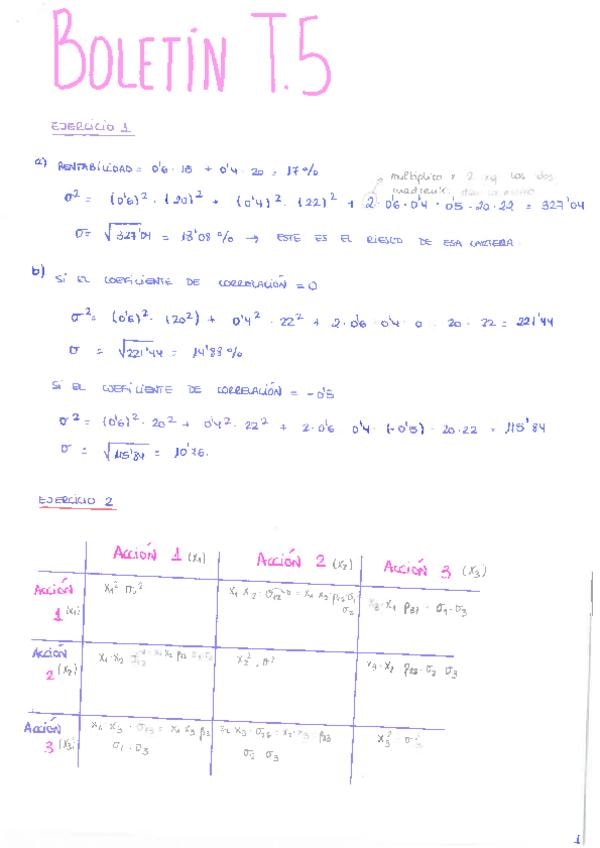 BOLETÍN T.5
EJERCICIO 1
a) RENTABILIDAD = 0'6 · 15 + 0'4 · 20 = 17%
multiplico x 2 xq los dos
σ² = (0'6)² · (20)² + (0'4)² · (22)² + 2 · 0'6 · 0'4 · 0'5 · 20 · 22 = 327'04
σ = √327'04 = 18'08 % → ESTE ES EL RIESGO DE ESA CARTERA.
b) SI EL COEFICIENTE DE CORRELACIÓN = 0
σ² = (0'6)² · (20²) + 0'4² · 22² + 2 · 0'6 · 0'4 · 0 · 20 · 22 = 221'44
σ = √221'44 = 14'88 %
SI EL COEFICIENTE DE CORRELACIÓN = -0'5
σ² = (0'6)² · 20² + 0'4² · 22² + 2 · 0'6 0'4 · (-0'5) · 20 · 22 = 115'84
σ = √115'84 = 10'76.
EJERCICIO 2
ACCIÓN 1 (x₁) ACCIÓN 2 (x₂) ACCIÓN 3 (x₃)
ACCIÓN
1 (x₁) x₁² σ₁² x₃ · x₁ ρ₃₁ · σ₁ · σ₃
ACCIÓN
2 (x₂) x₂² · σ² x₃ · x₂ ρ₂₃ · σ₂ σ₃
ACCIÓN
3 (x₃) σ₁ · σ₃ σ₂ · σ₃ x₃² · σ₃²
1